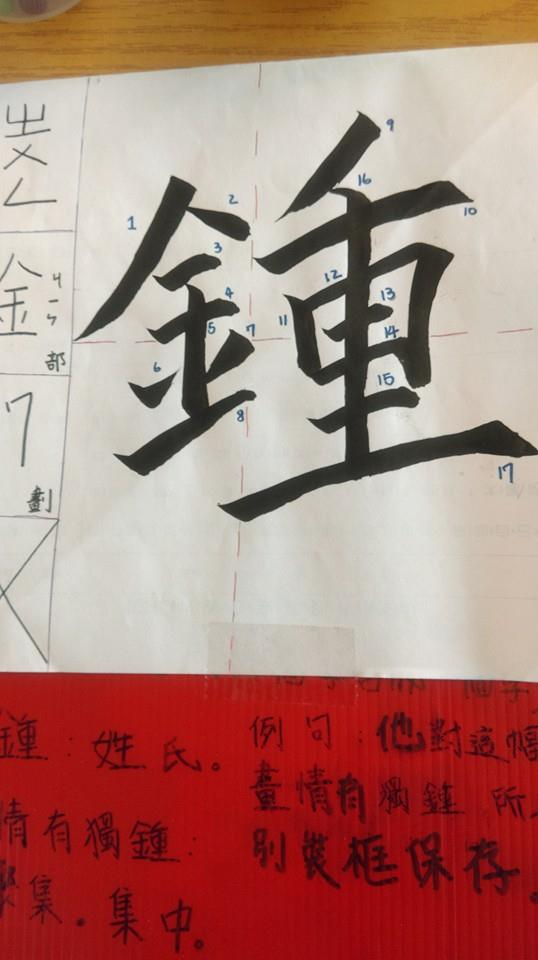 業
ㄨ
ㄥ
金
ㄐ
ㄧ
ㄣ
部
7
劃
鍾
1
2
3
4
5
6
7
8
9
10
11
12
13
14
15
16
17
鍾：姓氏。
情有獨鍾：
聚集。集中。
例句：他對這幅
畫情有獨鍾 所
別裝框保存。